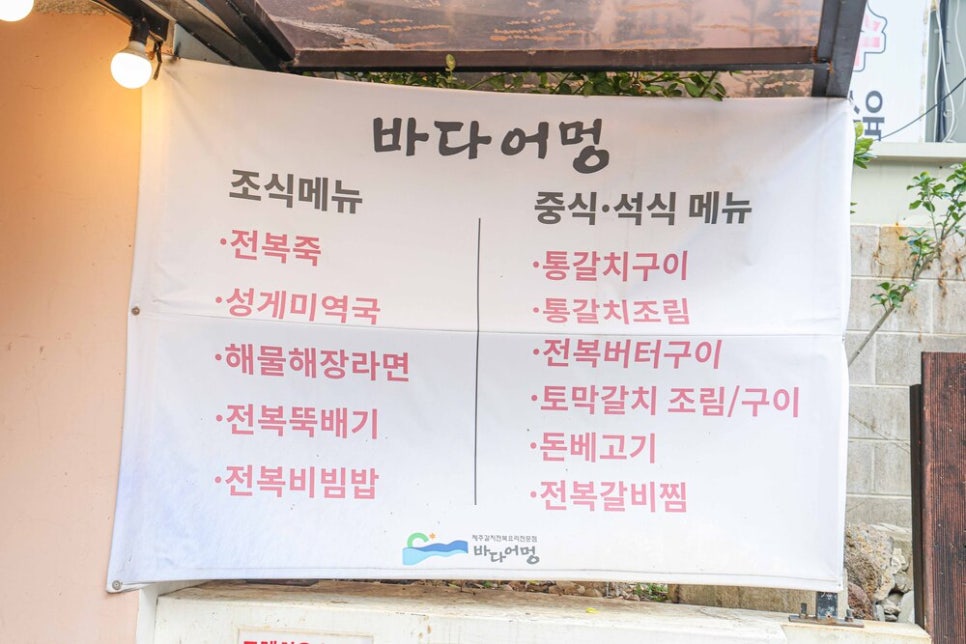 바다어멍
조식메뉴
·전복죽
·성게미역국
·해물해장라면
·전복뚝배기
·전복비빔밥
중식·석식 메뉴
·통갈치구이
·통갈치조림
·전복버터구이
·토막갈치 조림/구이
·돈베고기
·전복갈비찜
제주갈치전복요리전문점
바다어멍